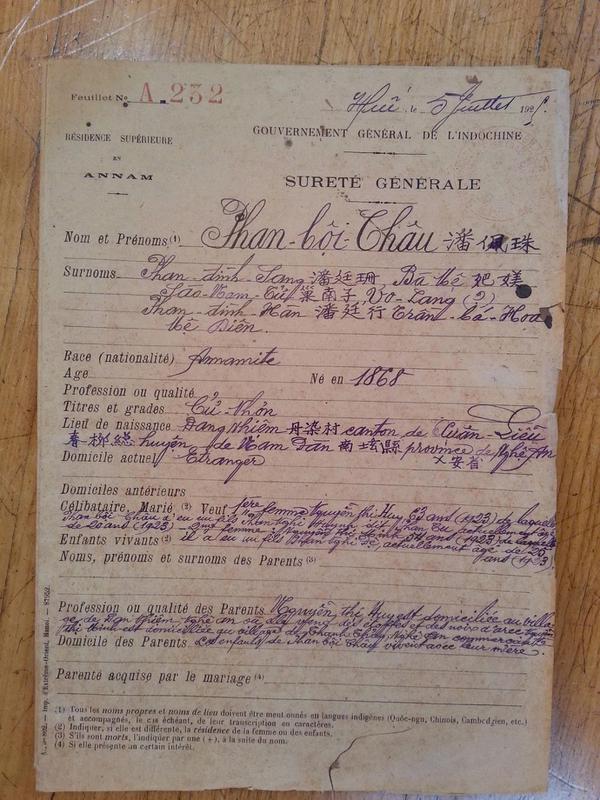 Feuillet No A.232
Huê, le 5 Juillet 192
RÉSIDENCE SUPÉRIEURE
EN
ANNAM
GOUVERNEMENT GÉNÉRAL DE L'INDOCHINE
SURETÉ GÉNÉRALE
Nom et Prénoms (1) Phan-bội-Châu 潘佩珠
Surnoms Phan-đình-Sang 潘廷珊, Ba bê
Sào-Nam-Tử 巢南子, Vo-Lang (2)
Phan-đình-Hân 潘廷行 Trân-bá-Hoa
bê Diên.
Race (nationalité) Annamite
Age Né en 1868
Profession ou qualité
Titres et grades Cử-Nhơn
Lieu de naissance Đang nhiêm 丹染村 canton de Xuân-Liễu
春柳總 huyện de Nam Đàn 南 縣 province de Nghê An
乂安省
Domicile actuel Etranger
Domiciles antérieurs
Célibataire, Marié (2) Veuf 1ère femme Nguyên thi Huy, 63 ans (1923) de laquelle
Phan bội Châu a eu un fils Phan Nghi Huynh dit Phan
de 20 ans (1923) 2ème femme Nguyên thi Minh 54 ans (1923) de laquelle
Enfants vivants (2) il a eu un fils Phan Nghi Đê actuellement âgé de 25
ans (1923)
Noms, prénoms et surnoms des Parents (3)
Profession ou qualité des Parents Nguyên thi Huy est domiciliée au villa-
ge de Đan Nhiêm, Nghê an
thi Minh est domiciliée au village de Nghê an
Domicile des Parents Les enfants de Phan bội Châu vivent avec leur mère.
Parenté acquise par le mariage (4)
(1) Tous les noms propres et noms de lieu doivent être mentionnés en langues indigènes (Quôc-ngu, Chinois, Cambodgien, etc.)
et accompagnés, le cas échéant, de leur transcription en caractères.
(2) Indiquer, si elle est différente, la résidence de la femme ou des enfants.
(3) S'ils sont morts, l'indiquer par une (+), à la suite du nom.
(4) Si elle présente un certain intérêt.
Imp. d'Extrême-Orient, Hanoi. — 87952.